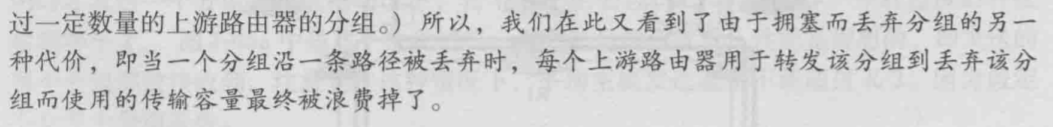 过一定数量的上游路由器的分组。）所以，我们在此又看到了由于拥塞而丢弃分组的另一
种代价，即当一个分组沿一条路径被丢弃时，每个上游路由器用于转发该分组到丢弃该分
组而使用的传输容量最终被浪费掉了。